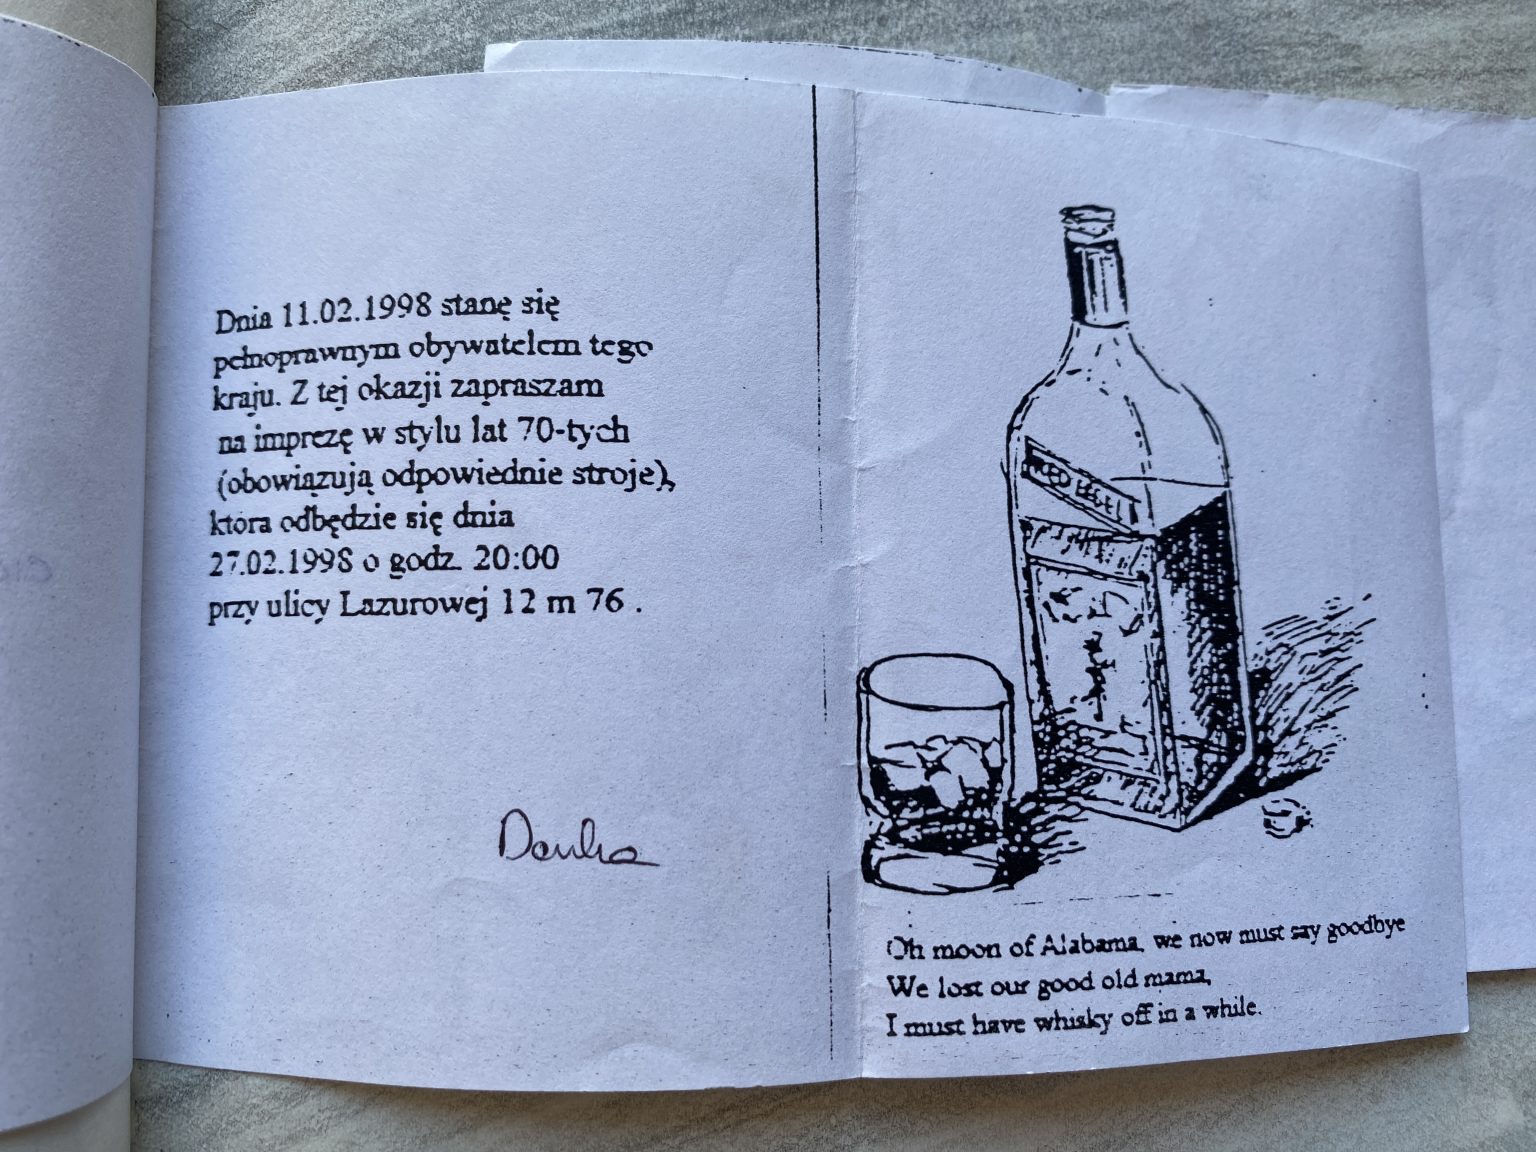 Dnia 11.02.1998 stanę się
pełnoprawnym obywatelem tego
kraju. Z tej okazji zapraszam
na imprezę w stylu lat 70-tych
(obowiązują odpowiednie stroje),
która odbędzie się dnia
27.02.1998 o godz. 20:00
przy ulicy Lazurowej 12 m 76 .
Danka
RED LABEL
Oh moon of Alabama, we now must say goodbye
We lost our good old mama,
I must have whisky off in a while.